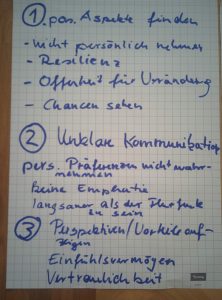 ① pos. Aspekte finden
- nicht persönlich nehmen
- Resilienz
- Offenheit für Veränderung
- Chancen sehen
② Unklare Kommunikation
pers. Präferenzen nicht wahr-
nehmen
keine Empathie
langsamer als der Flurfunk
zu sein
③ Perspektiven/Vorteile auf-
zeigen
Einfühlsvermögen
Vertraulichkeit